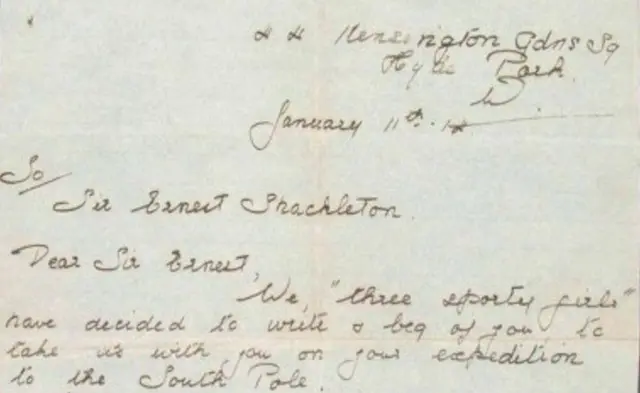 44 Kensington Gdns Sq
Hyde Park
W.
January 11th. 14
To
Sir Ernest Shackleton.
Dear Sir Ernest,
We, "three sporty girls"
have decided to write & beg of you, to
take us with you on your expedition
to the South Pole.